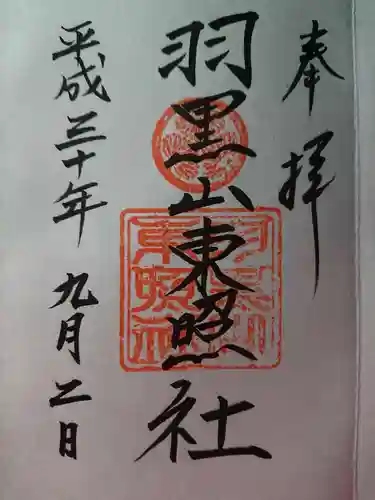 奉拝
羽黒山東照社
平成三十年 九月二日